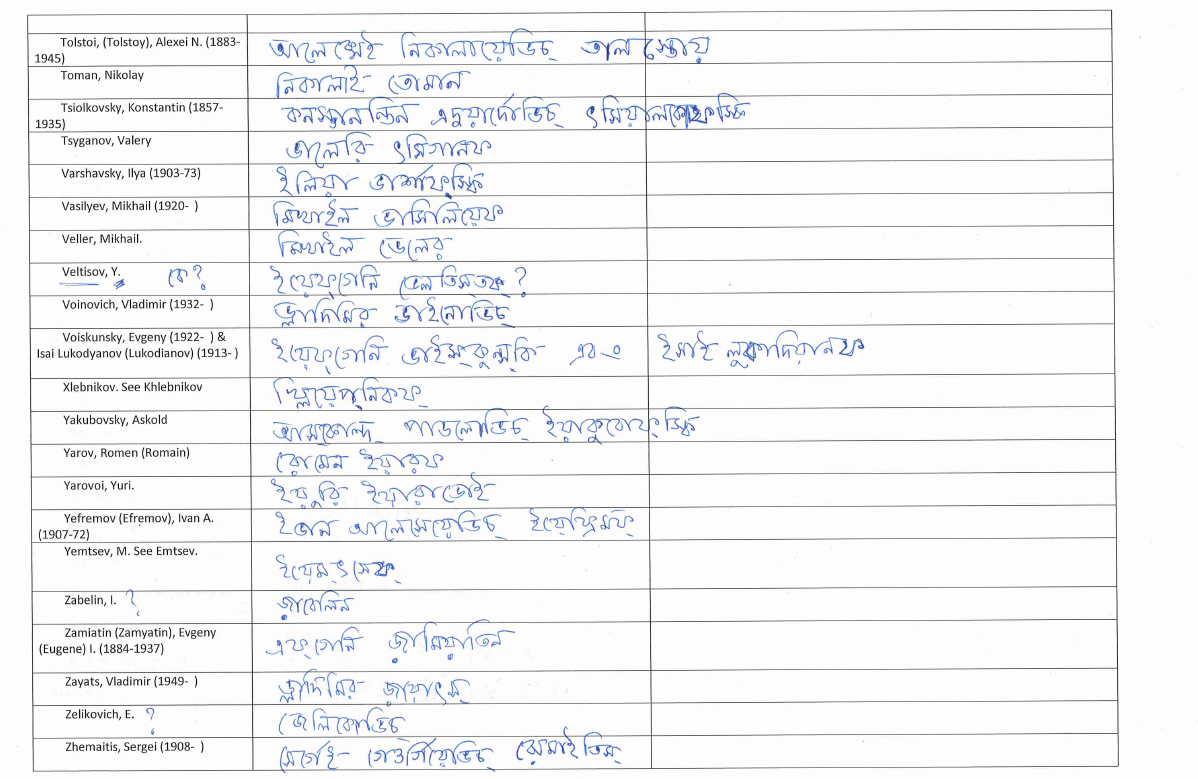 Tolstoi, (Tolstoy), Alexei N. (1883-1945) আলেক্সেই নিকালায়েভিচ্ তালস্তোয়
Toman, Nikolay নিকালাই তোমান
Tsiolkovsky, Konstantin (1857-1935) কনস্তানতিন এদুয়ার্দোভিচ্ ৎসিয়ালকোফস্কি
Tsyganov, Valery ভালেরি ৎসিগানফ
Varshavsky, Ilya (1903-73) ইলিয়া ভার্শাফ্স্কি
Vasilyev, Mikhail (1920- ) মিখাইল ভাসিলিয়েফ
Veller, Mikhail. মিখাইল ভেলের
Veltisov, Y. কে? ইয়েফ্গেনি ভেলতিস্তফ্ ?
Voinovich, Vladimir (1932- ) ভ্লাদিমির ভাইনোভিচ্
Voiskunsky, Evgeny (1922- ) &
Isai Lukodyanov (Lukodianov) (1913- ) ইয়েফ্গেনি ভাইস্কুন্স্কি এবং ইসাই লুকাদিয়ানফ
Xlebnikov. See Khlebnikov খ্লিয়েপ্নিকফ্
Yakubovsky, Askold আস্কোল্দ্ পাভলোভিচ্ ইয়াকুবোফ্স্কি
Yarov, Romen (Romain) রোমেন ইয়ারফ
Yarovoi, Yuri. ইয়ুরি ইয়ারাভোই
Yefremov (Efremov), Ivan A.
(1907-72) ইভান আলেসেয়েভিচ্ ইয়েফ্রিমফ্
Yemtsev, M. See Emtsev. ইয়েম্ৎসেফ্
Zabelin, I. ? জাবেলিন
Zamiatin (Zamyatin), Evgeny
(Eugene) I. (1884-1937) এফ্গেনি জামিয়াতিন
Zayats, Vladimir (1949- ) ভ্লাদিমির জায়াৎস্
Zelikovich, E. ? জেলিকোভিচ্
Zhemaitis, Sergei (1908- ) সের্গেই গেওর্গিয়েভিচ্ ঝেমাইতিস্